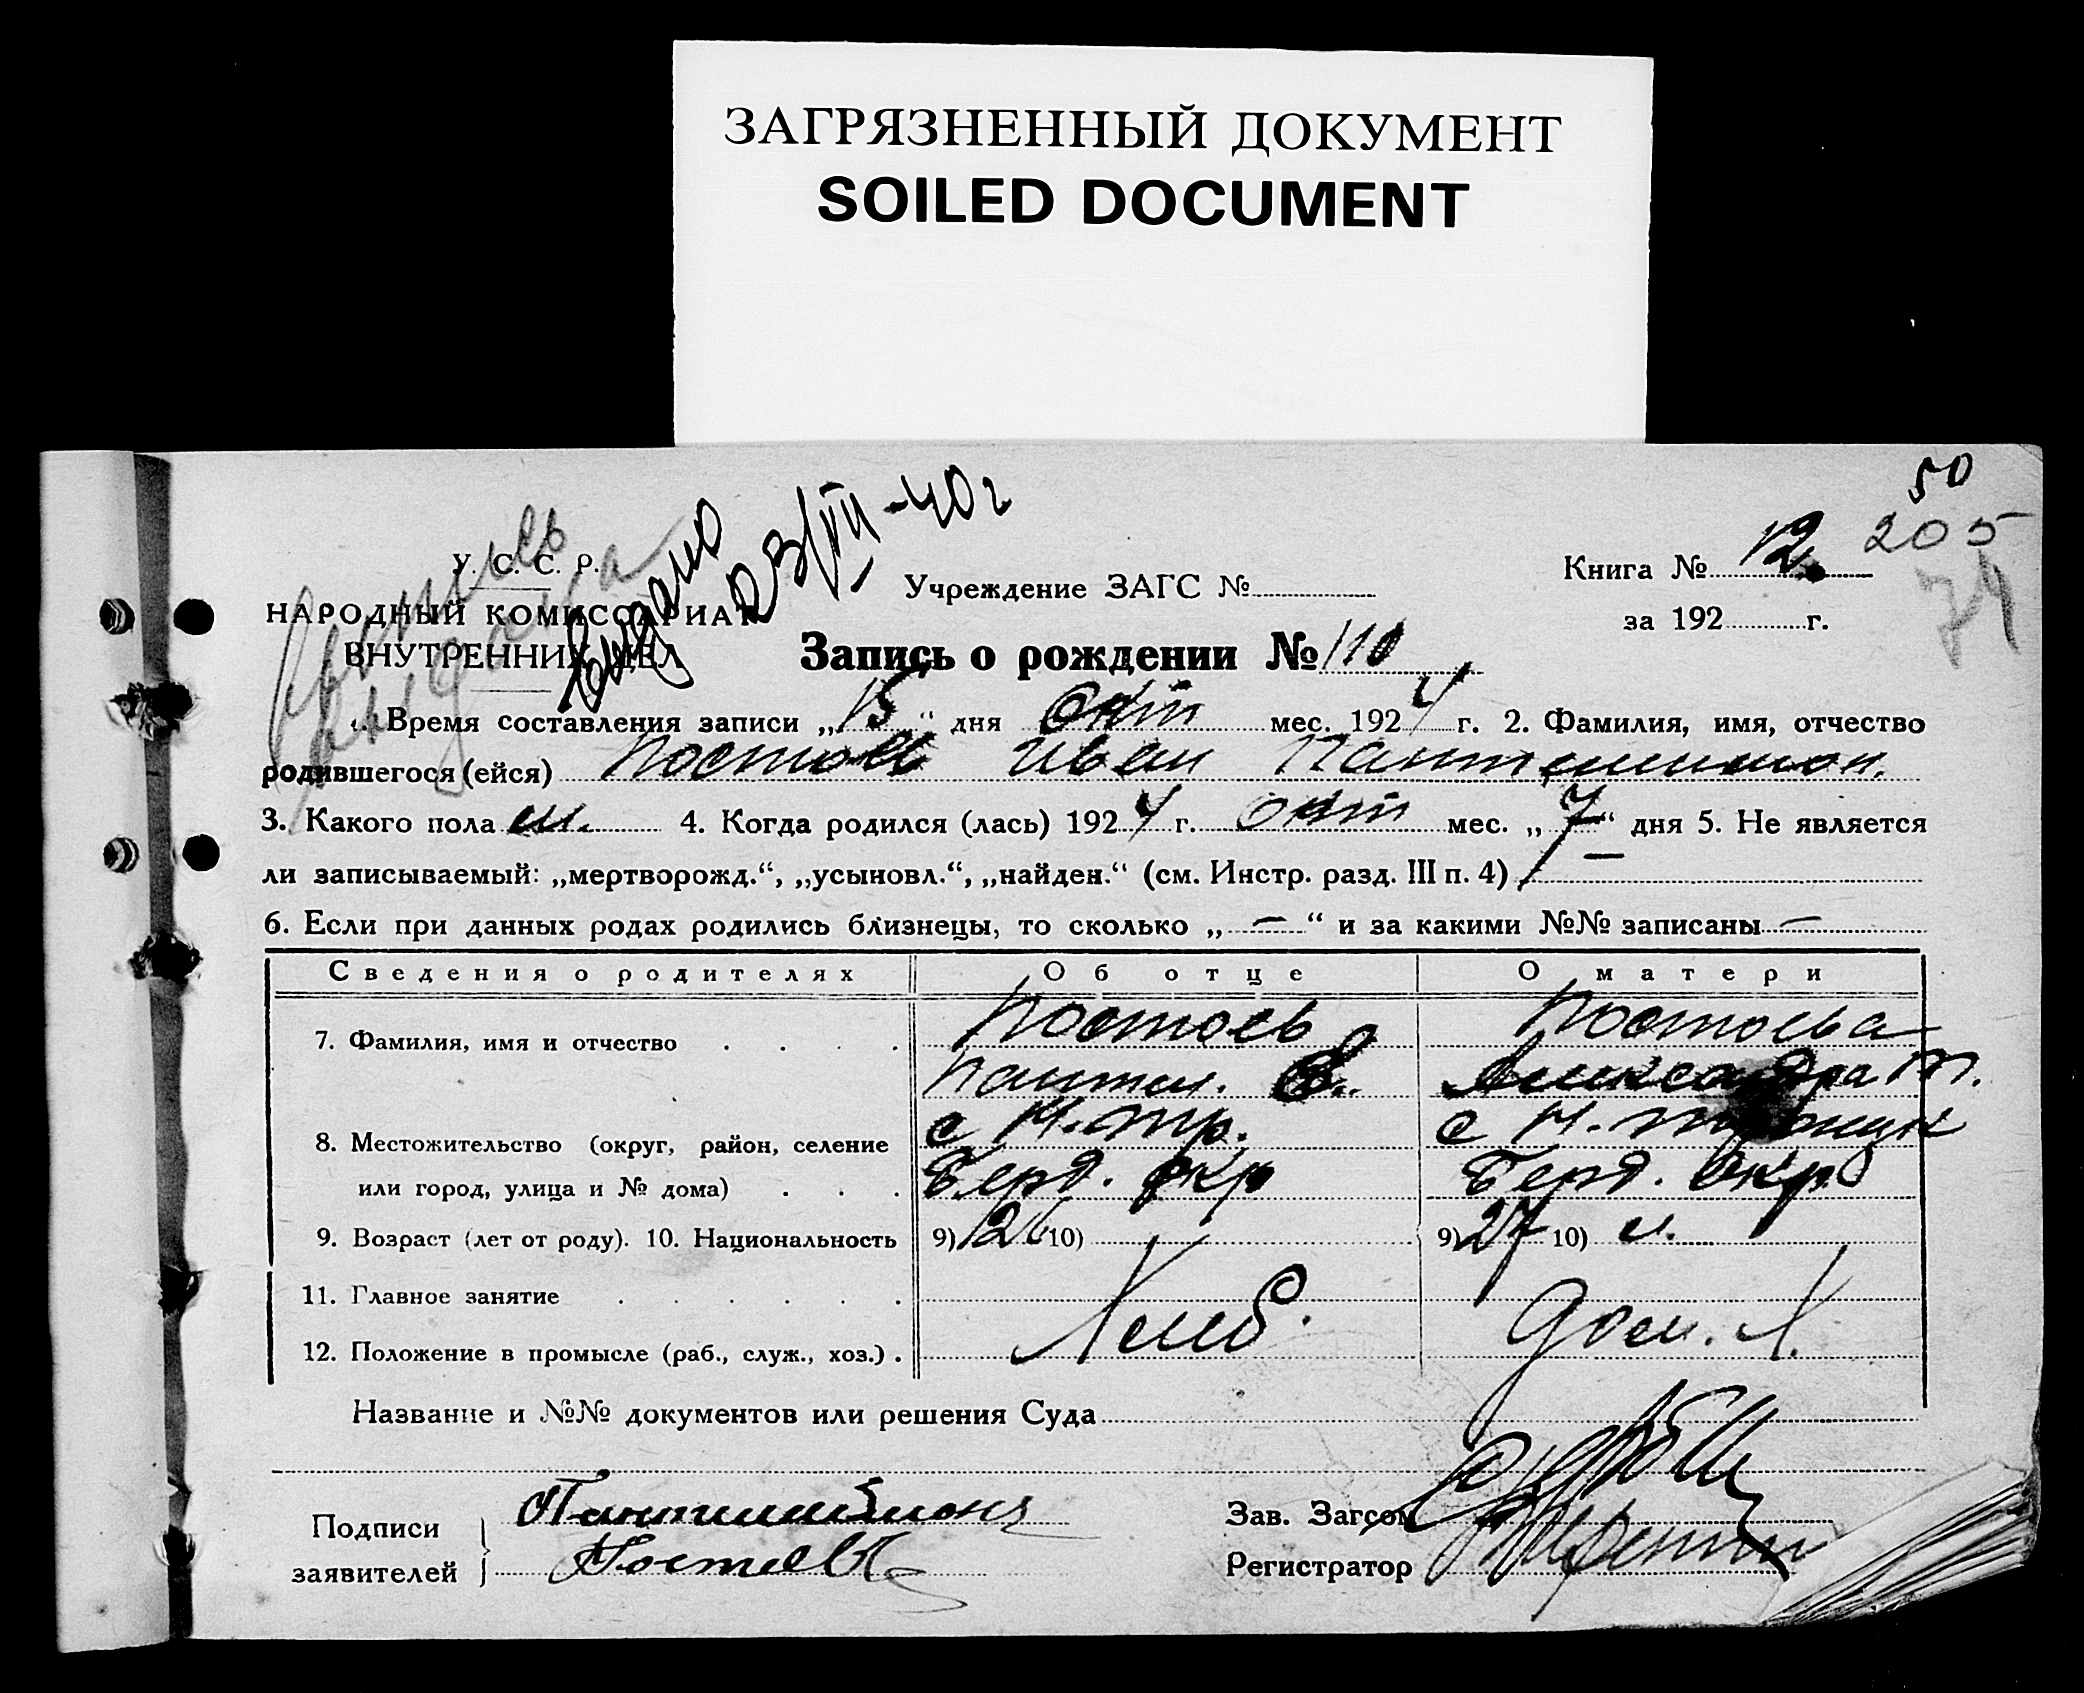 ЗАГРЯЗНЕННЫЙ ДОКУМЕНТ
SOILED DOCUMENT
50
205
74
Выдано
23/VII-40г
У. С. С. Р.
НАРОДНЫЙ КОМИССАРИАТ
ВНУТРЕННИХ ДЕЛ
Учреждение ЗАГС №
Книга № 12
за 192 г.
Запись о рождении № 110
Время составления записи „15“ дня Окт мес. 1924 г. 2. Фамилия, имя, отчество
родившегося (ейся) Постоев Иван
3. Какого пола м. 4. Когда родился (лась) 1924 г. окт мес. „7“ дня 5. Не является
ли записываемый: „мертворожд.“, „усыновл.“, „найден.“ (см. Инстр. разд. III п. 4)
6. Если при данных родах родились близнецы, то сколько „—“ и за какими №№ записаны —
Сведения о родителях Об отце О матери
7. Фамилия, имя и отчество Постоев Постоева
Пантел. Александра Т.
8. Местожительство (округ, район, селение с Н. Тр. с Н.
или город, улица и № дома) Берд. окр Берд. Окр.
9. Возраст (лет от роду). 10. Национальность 9) 26 10) 9) 27 10)
11. Главное занятие
Хлеб. дом. х.
12. Положение в промысле (раб., служ., хоз.)
Название и №№ документов или решения Суда
Подписи
заявителей
Постоев
Зав. Загсом
Регистратор